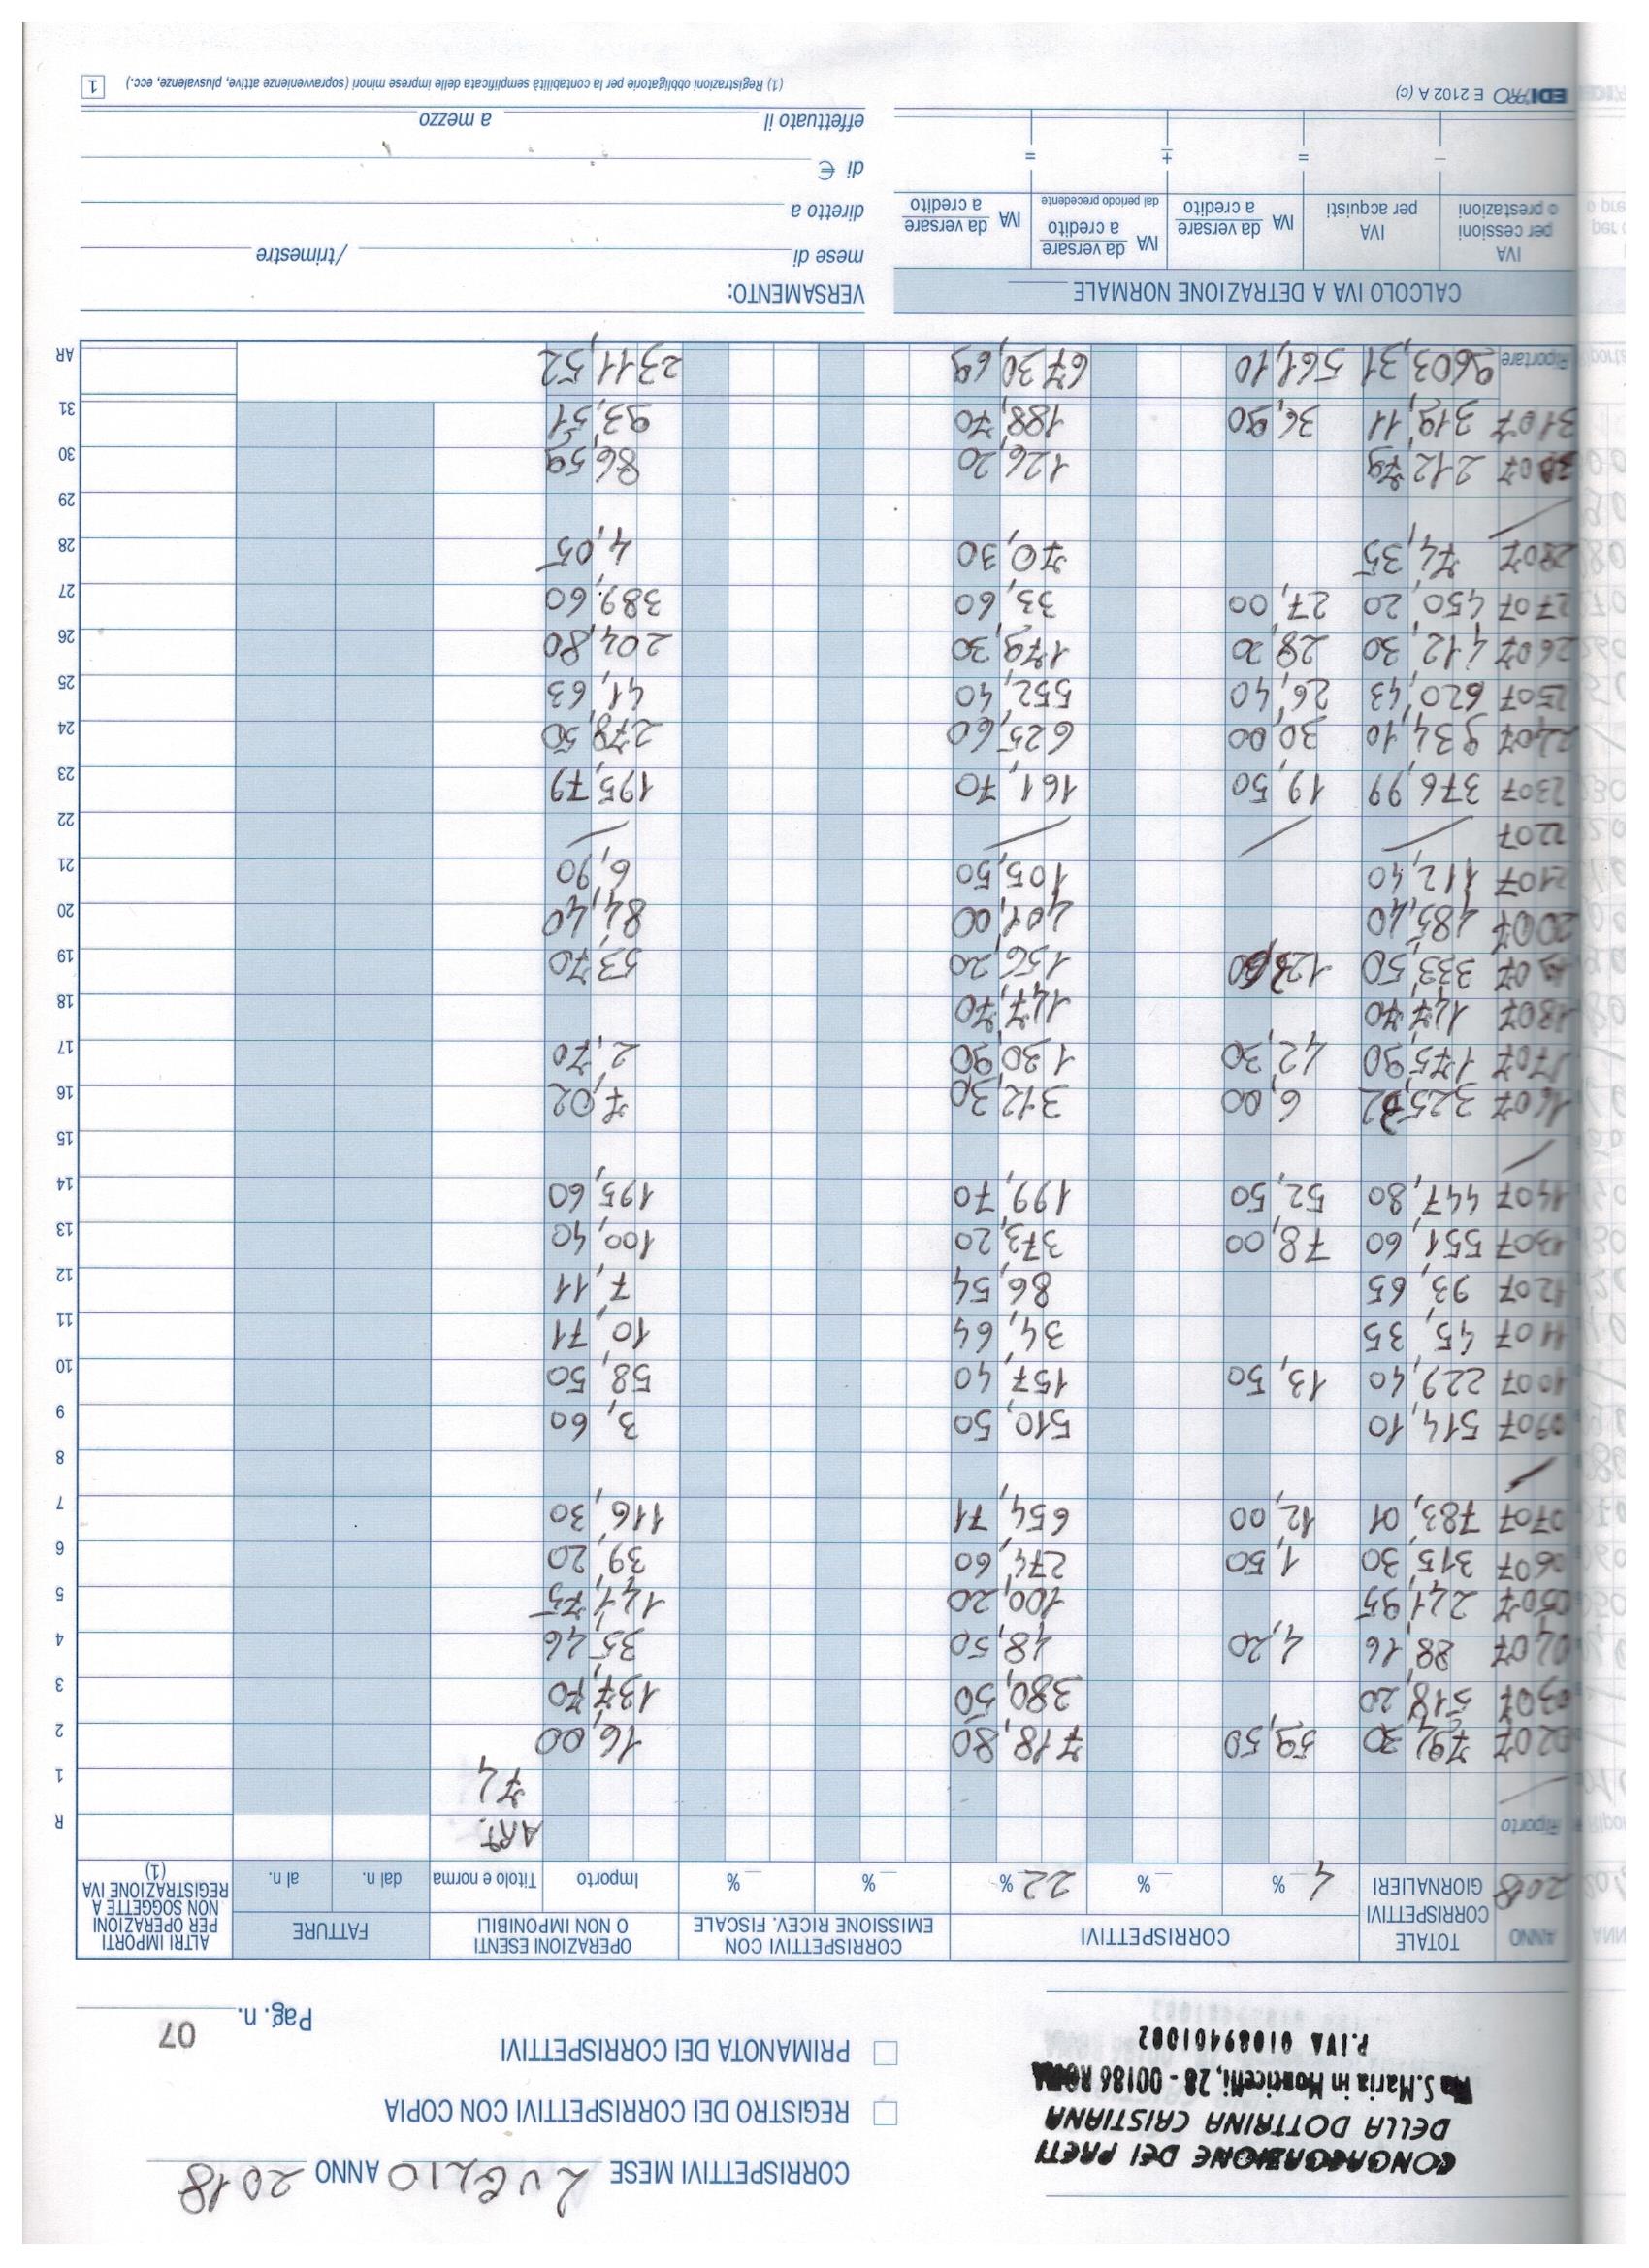 CONGREGAZIONE DEI PRETI
DELLA DOTTRINA CRISTIANA
Via S.Maria in Monticelli, 28 - 00186 ROMA
P.IVA 01089401002
CORRISPETTIVI MESE LUGLIO ANNO 2018
REGISTRO DEI CORRISPETTIVI CON COPIA
PRIMANOTA DEI CORRISPETTIVI
Pag. n. 07
ANNO 2018
TOTALE CORRISPETTIVI GIORNALIERI
CORRISPETTIVI
4 % % 22 %
CORRISPETTIVI CON EMISSIONE RICEV. FISCALE
% %
OPERAZIONI ESENTI O NON IMPONIBILI
Importo Titolo e norma
FATTURE
dal n. al n.
ALTRI IMPORTI PER OPERAZIONI NON SOGGETTE A REGISTRAZIONE IVA (1)
Riporto ART. R
74 1
0207 794,30 59,50 718,80 16,00 2
0307 518,20 380,50 137,70 3
0407 88,16 4,20 48,50 35,46 4
0507 241,95 100,20 141,75 5
0607 315,30 1,50 274,60 39,20 6
0707 783,01 12,00 654,71 116,30 7
8
0907 514,10 510,50 3,60 9
1007 229,40 13,50 157,40 58,50 10
1107 45,35 34,64 10,71 11
1207 93,65 86,54 7,11 12
1307 551,60 78,00 373,20 100,40 13
1407 447,80 52,50 199,70 195,60 14
15
1607 325,32 6,00 312,30 7,02 16
1707 175,90 42,30 130,90 2,70 17
1807 147,70 147,70 18
1907 333,50 123,60 156,20 53,70 19
2007 485,40 401,00 84,40 20
2107 112,40 105,50 6,90 21
2207 22
2307 376,99 19,50 161,70 195,79 23
2407 934,10 30,00 625,60 278,50 24
2507 620,43 26,40 552,40 41,63 25
2607 412,30 28,20 179,30 204,80 26
2707 450,20 27,00 33,60 389,60 27
2807 74,35 70,30 4,05 28
29
3007 212,79 126,20 86,59 30
3107 319,11 36,90 188,70 93,51 31
Riportare 9603,31 561,10 6730,69 2311,52 AR
CALCOLO IVA A DETRAZIONE NORMALE
IVA per cessioni o prestazioni
IVA per acquisti
IVA da versare a credito
IVA da versare a credito dal periodo precedente
IVA da versare a credito
– = ± =
VERSAMENTO:
mese di /trimestre
diretto a
di €
effettuato il a mezzo
EDIPRO E 2102 A (c)
(1) Registrazioni obbligatorie per la contabilità semplificata delle imprese minori (sopravvenienze attive, plusvalenze, ecc.)
1